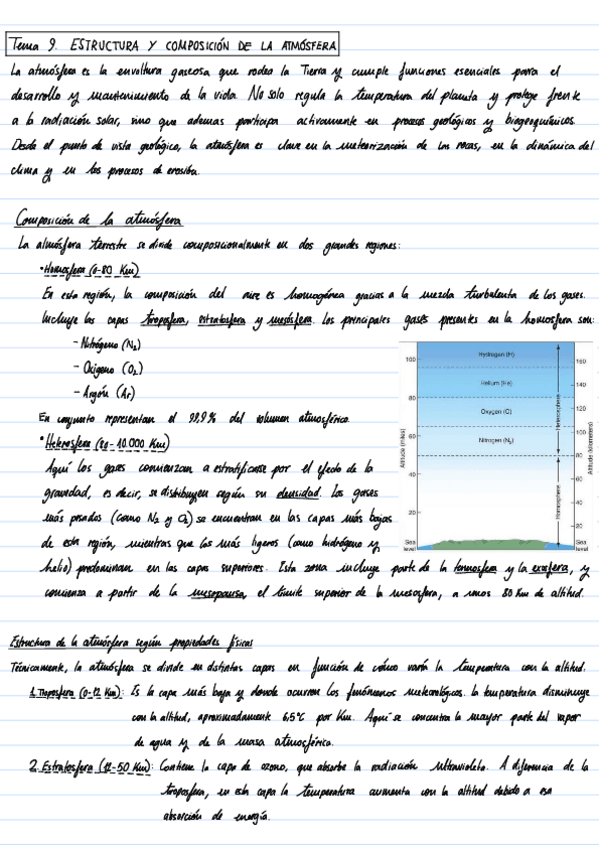 Tema 9. ESTRUCTURA Y COMPOSICIÓN DE LA ATMÓSFERA
La atmósfera es la envoltura gaseosa que rodea la Tierra y cumple funciones esenciales para el
desarrollo y mantenimiento de la vida. No solo regula la temperatura del planeta y protege frente
a la radiación solar, sino que ademas participa activamente en procesos geológicos y biogeoquímicos.
Desde el punto de vista geológico, la atmósfera es clave en la meteorización de las rocas, en la dinámica del
clima y en los procesos de erosión.
Composición de la atmósfera
La atmósfera terrestre se divide composicionalmente en dos grandes regiones:
• Homosfera (0-80 Km)
En esta región, la composición del aire es homogénea gracias a la mezcla turbulenta de los gases.
Incluye las capas troposfera, estratosfera y mesosfera. Los principales gases presentes en la homosfera son:
- Nitrógeno (N₂)
- Oxigeno (O₂)
- Argón (Ar)
En conjunto representan el 99,9% del volumen atmosférico.
• Heterosfera (80-10.000 Km)
Aquí los gases comienzan a estratificarse por el efecto de la
gravedad, es decir, se distribuyen según su densidad. Los gases
más pesados (como N₂ y O₂) se encuentran en las capas más bajas
de esta región, mientras que los más ligeros (como hidrógeno y
helio) predominan en las capas superiores. Esta zona incluye parte de la termosfera y la exosfera, y
comienza a partir de la mesopausa, el límite superior de la mesosfera, a unos 80 Km de altitud.
Hydrogen (H)
Helium (He)
Oxygen (O)
Nitrogen (N₂)
Heterosphere
Homosphere
Altitude (miles)
Altitude (kilometers)
100
80
60
40
20
Sea level
160
140
120
100
80
60
40
20
Sea level
Estructura de la atmósfera según propiedades físicas
Técnicamente, la atmósfera se divide en distintas capas en función de cómo varía la temperatura con la altitud.
1. Troposfera (0-12 Km): Es la capa más baja y donde ocurren los fenómenos meteorológicos. La temperatura disminuye
con la altitud, aproximadamente 6,5°C por Km. Aquí se concentra la mayor parte del vapor
de agua y de la masa atmosférica.
2. Estratosfera (12-50 Km): Contiene la capa de ozono, que absorbe la radiación ultravioleta. A diferencia de la
troposfera, en esta capa la temperatura aumenta con la altitud debido a esa
absorción de energía.